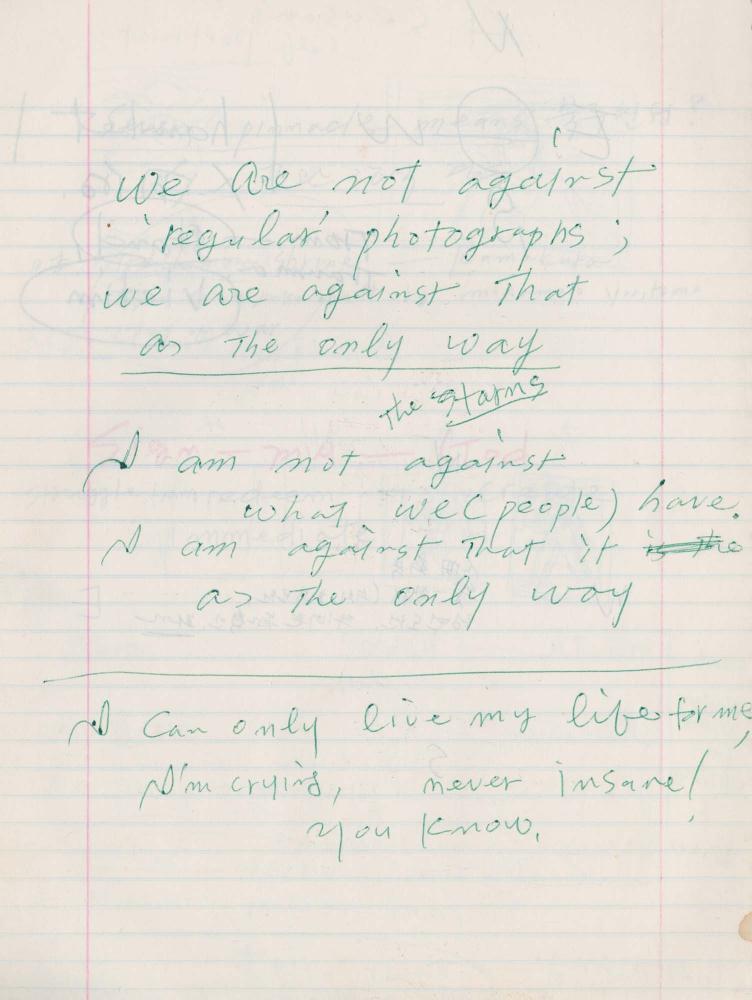 We are not against
'regular' photographs;
we are against That
as The only way
the
I am not against
what we (people) have.
I am against That it
as The only way
I can only live my life for me,
I'm crying, never insane!
you know.